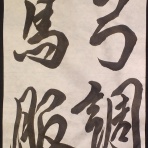 弓調
馬服